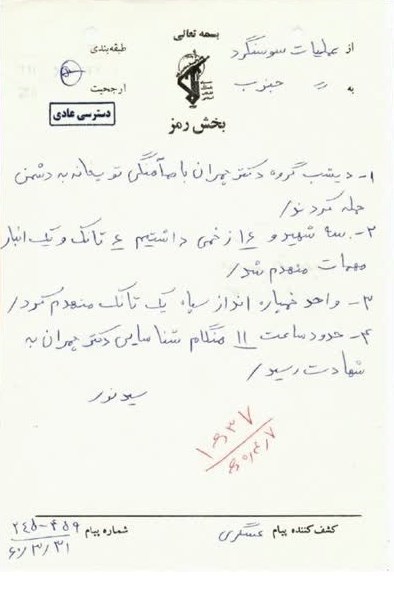 بسمه تعالی
از عملیات سوسنگرد
به " جنوب
طبقه‌بندی
ارجحیت
دسترسی عادی
بخش رمز
۱- دیشب گروه دکتر چمران با هماهنگی توپخانه به دشمن
حمله کردند /
۲- سه شهید و ۱۶ زخمی داشتیم ۴ تانک و یک انبار
مهمات منهدم شد /
۳- واحد خمپاره انداز سپاه یک تانک منهدم کرد /
۴- حدود ساعت ۱۱ هنگام شناسایی دکتر چمران به
شهادت رسید /
سیدنور
کشف کننده پیام عسگری
شماره پیام ۴۵۹-۲۴۵
۶۰/۳/۳۱